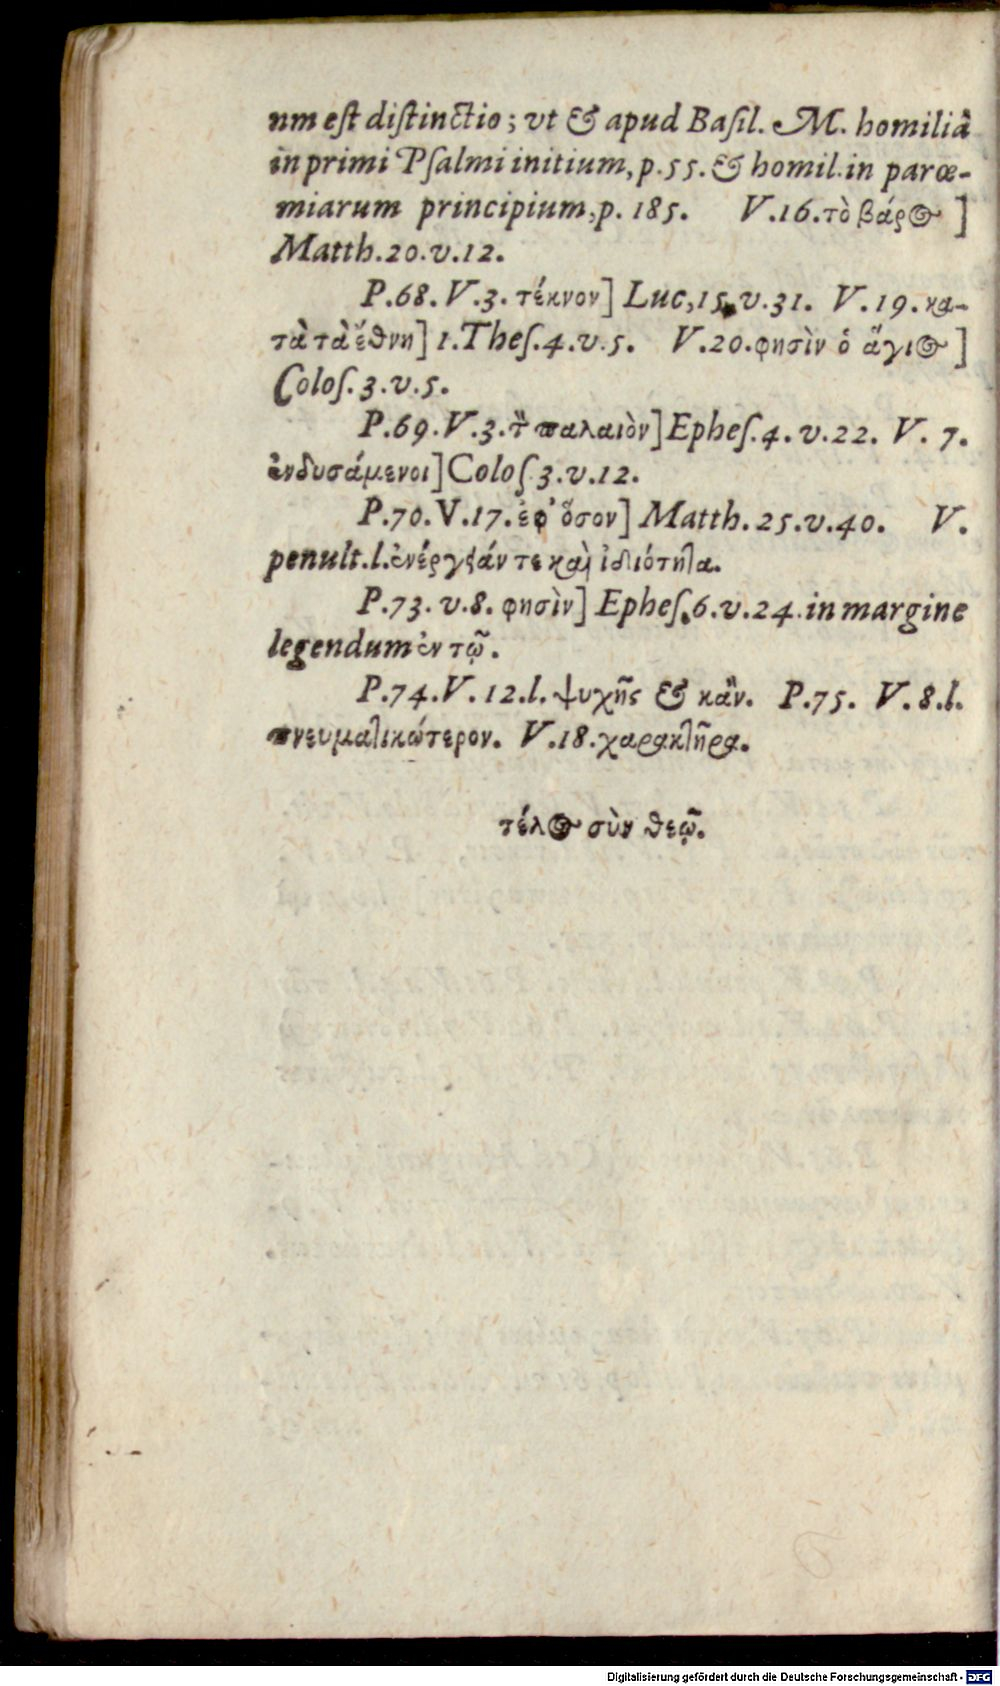 um est distinctio; vt & apud Basil. M. homiliâ
in primi Psalmi initium, p. 55. & homil. in parœ-
miarum principium, p. 185. V. 16. τὸ βάρος ]
Matth. 20. v. 12.
P. 68. V. 3. τέκνον] Luc, 15. v. 31. V. 19. κα-
τὰ τὰ ἔθνη] 1. Thes. 4. v. 5. V. 20. φησὶν ὁ ἅγιος ]
Colos. 3. v. 5.
P. 69. V. 3. τὸν παλαιὸν] Ephes. 4. v. 22. V. 7.
ἐνδυσάμενοι] Colos. 3. v. 12.
P. 70. V. 17. ἐφ' ὅσον] Matth. 25. v. 40. V.
penult. l. ἐνέργειάν τε καὶ ἰδιότητα.
P. 73. v. 8. φησὶν] Ephes. 6. v. 24. in margine
legendum ἐν τῷ.
P. 74. V. 12. l. ψυχῆς & κἂν. P. 75. V. 8. l.
πνευματικώτερον. V. 18. χαρακτῆρα.
τέλος σὺν θεῷ.
Digitalisierung gefördert durch die Deutsche Forschungsgemeinschaft - DFG